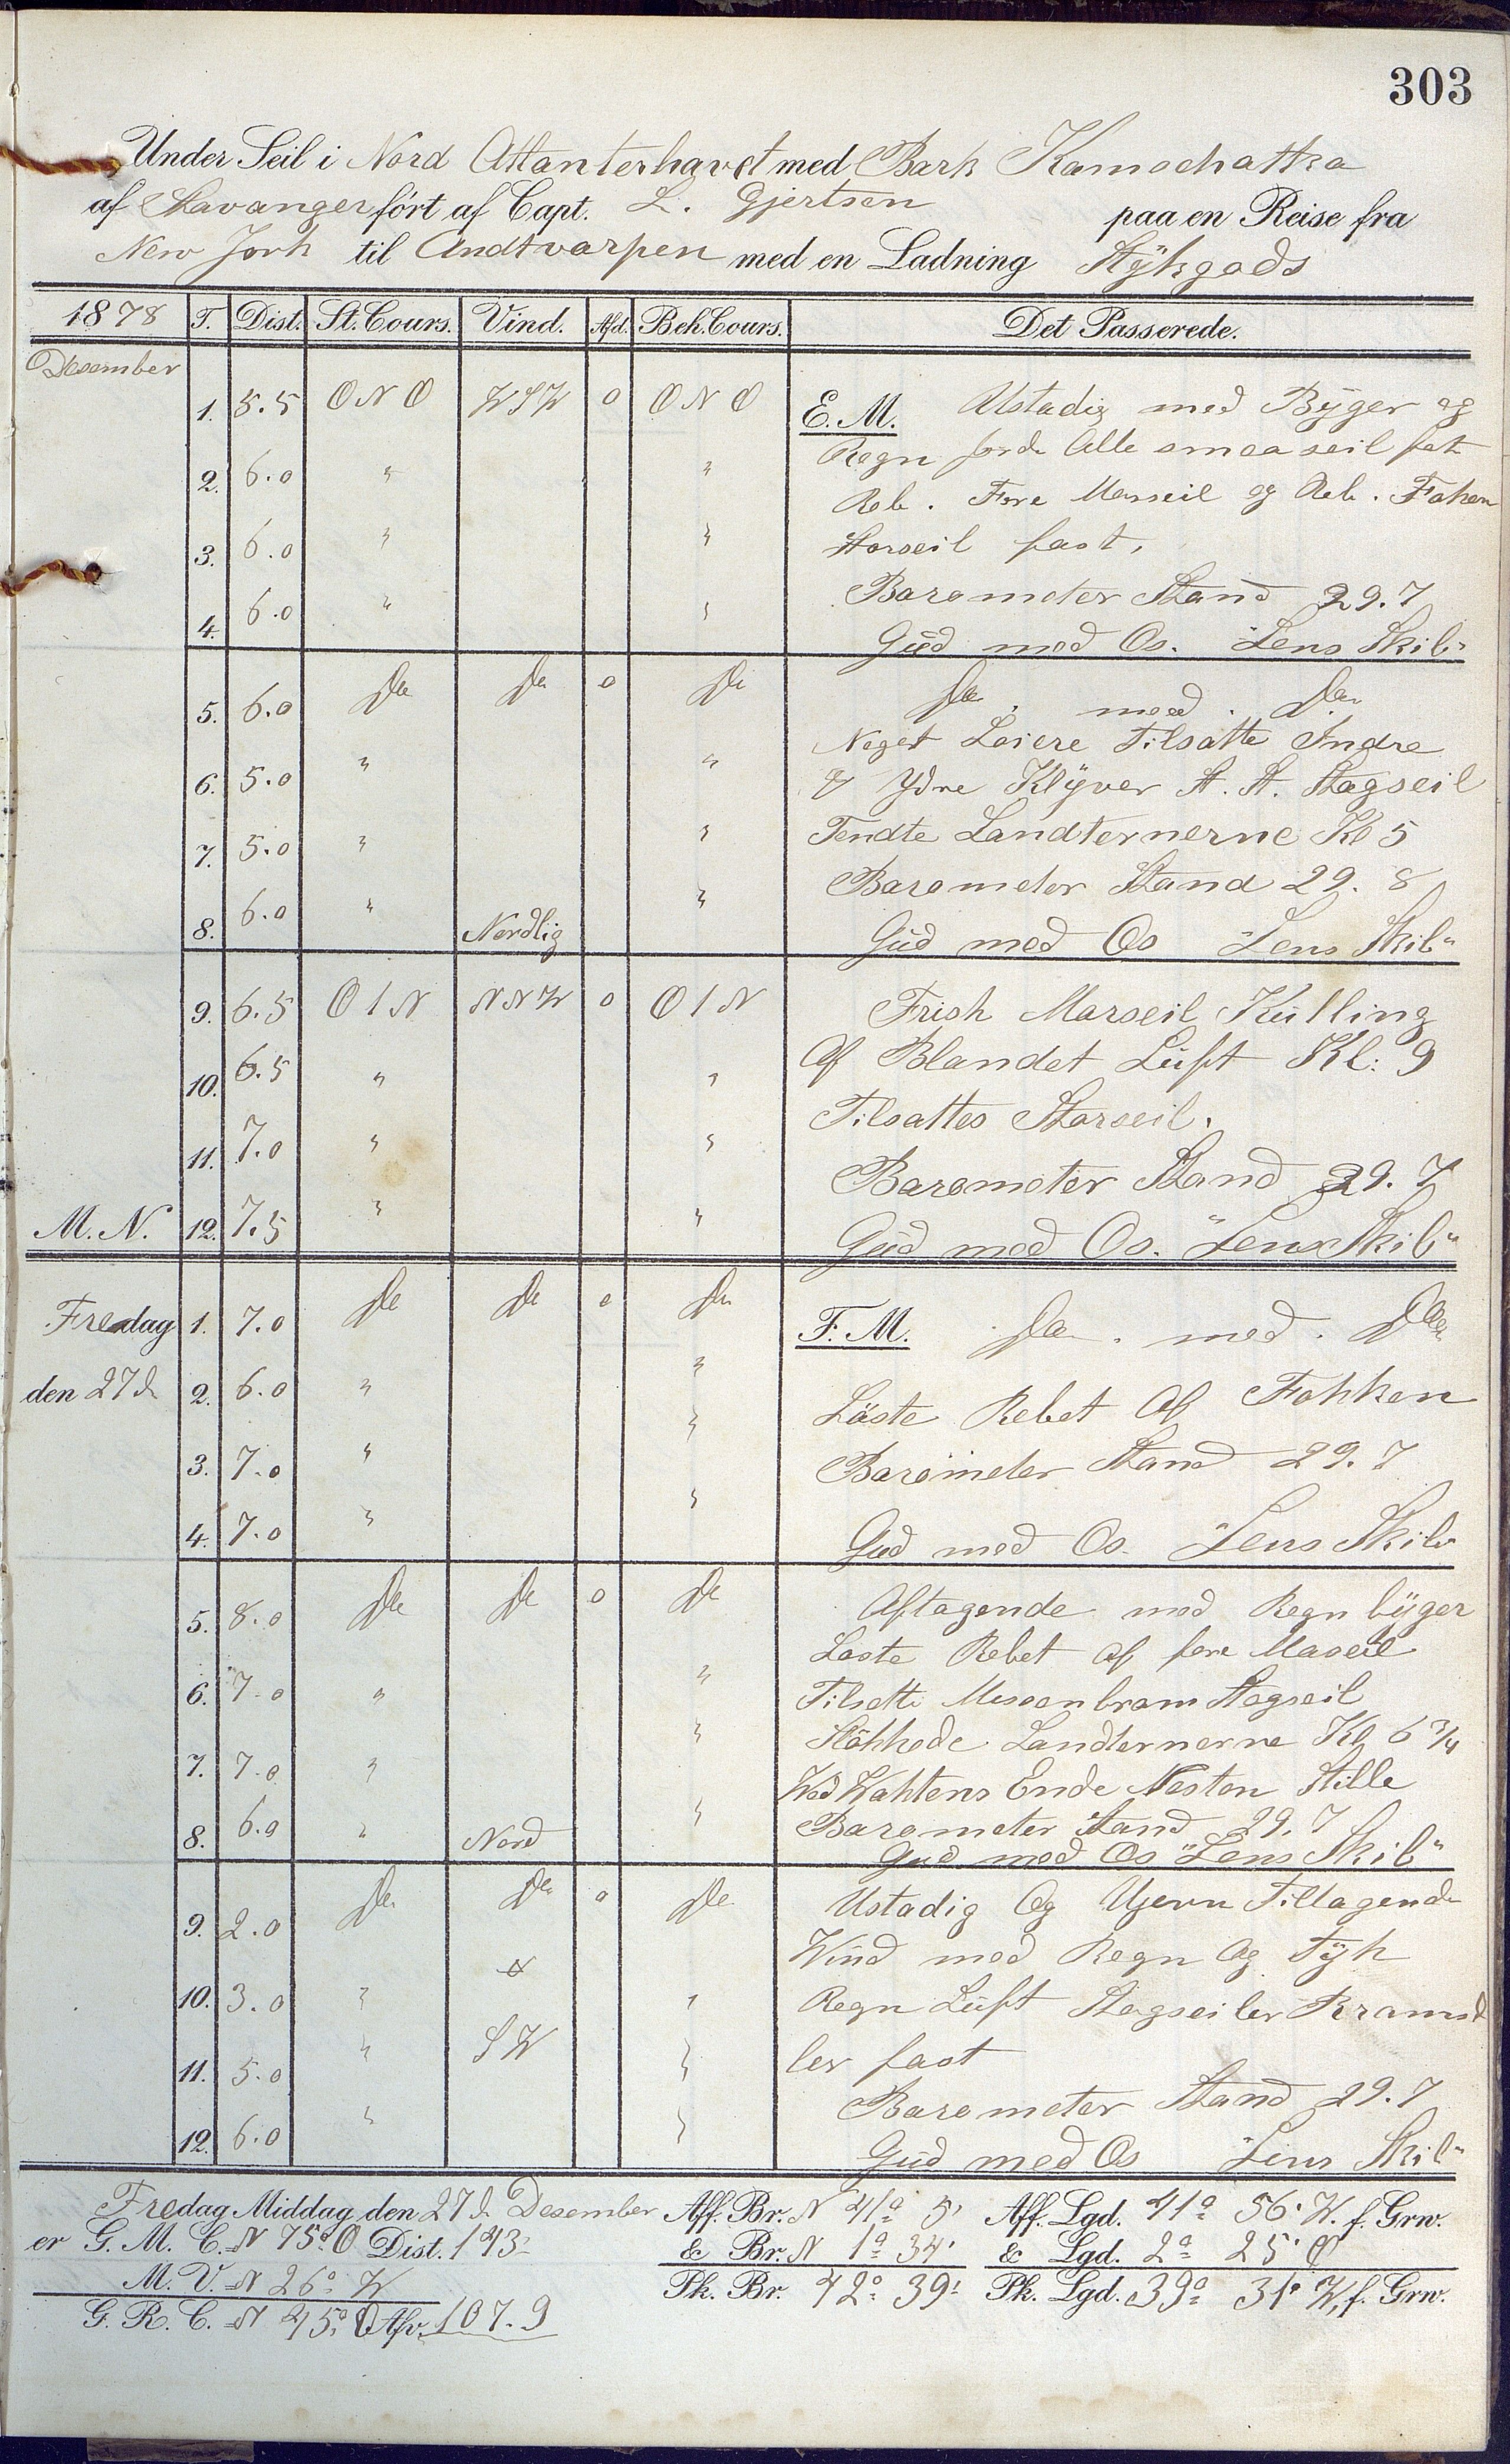 303
Under Seil i Nord Atlanterhavet med Bark Kamschatka
af Stavanger ført af Capt. L. Gjertsen paa en Reise fra
New York til Andtvarpen med en Ladning Stÿkgods
1878 T. Dist. St. Cours. Vind. Afd. Beh. Cours. Det Passerede.
Desember
1. 5.5 ONO WSW 0 ONO E. M. Ustadig med Bÿger og
Regn forde Alle smaa seil fat
2. 6.0 " "
Reb. Fore Merseil og Reb. Foken
3. 6.0 " " Storseil fast.
4. 6.0 " " Barometer Stand 29.7
Gud med Os. "Lens Skib"
5. 6.0 Do Do 0 Do Do. med. Do.
Noget Leiere Tilsatte Indre
6. 5.0 " " & Ydre Klÿver St. St. Stagseil
7. 5.0 " " Tendte Landternerne Kl 5
Barometer Stand 29. 8
8. 6.0 " Nordlig " Gud med Os "Lens Skib"
9. 6.5 O 1 N NNW 0 O 1 N Frisk Marseil Kulling
10. 6.5 " " Af Blandet Luft Kl: 9
Tilsattes Storseil.
11. 7.0 " " Barometer Stand 29. 7
M. N. 12. 7.5 " " Gud med Os. "Lens Skib"
Fredag 1. 7.0 Do Do 0 Do F. M. Do. med. Do
den 27d 2. 6.0 " " Löste Rebet Af Fokken
3. 7.0 " " Barometer Stand 29. 7
4. 7.0 " " Gud med Os. "Lens Skib"
5. 8.0 Do Do 0 Do Aftagende med Regn bÿger
Loste Rebet af fore Maseil
6. 7.0 " " Tilsatte Mesanbram Stagseil
Slökkede Landternerne Kl 6 3/4
7. 7.0 " " Wed Wahtens Ende Nesten Stille
Barometer Stand 29. 7
8. 6.0 " Nord " Gud med Os "Lens Skib"
9. 2.0 Do Do 0 Do Ustadig Og Ujevn Tiltagende
Wind med Regn Og Tÿk
10. 3.0 " " Regn Luft Stagseiler Bramsei
11. 5.0 " SW " ler fast
Barometer Stand 29. 7
12. 6.0 " " Gud med Os "Lens Skib"
Fredag Middag den 27d Desember Aff. Br. N 41° 5' Aff. Lgd. 41° 56' W. f. Grw.
er G. M. C. N 75° O Dist. 143 & Br. N 1° 34' & Lgd. 2° 25' O
M. V. N 26° W Pk. Br. 42° 39' Pk. Lgd. 39° 31' W. f. Grw.
G. R. C. N 45° O Afv. 107.9